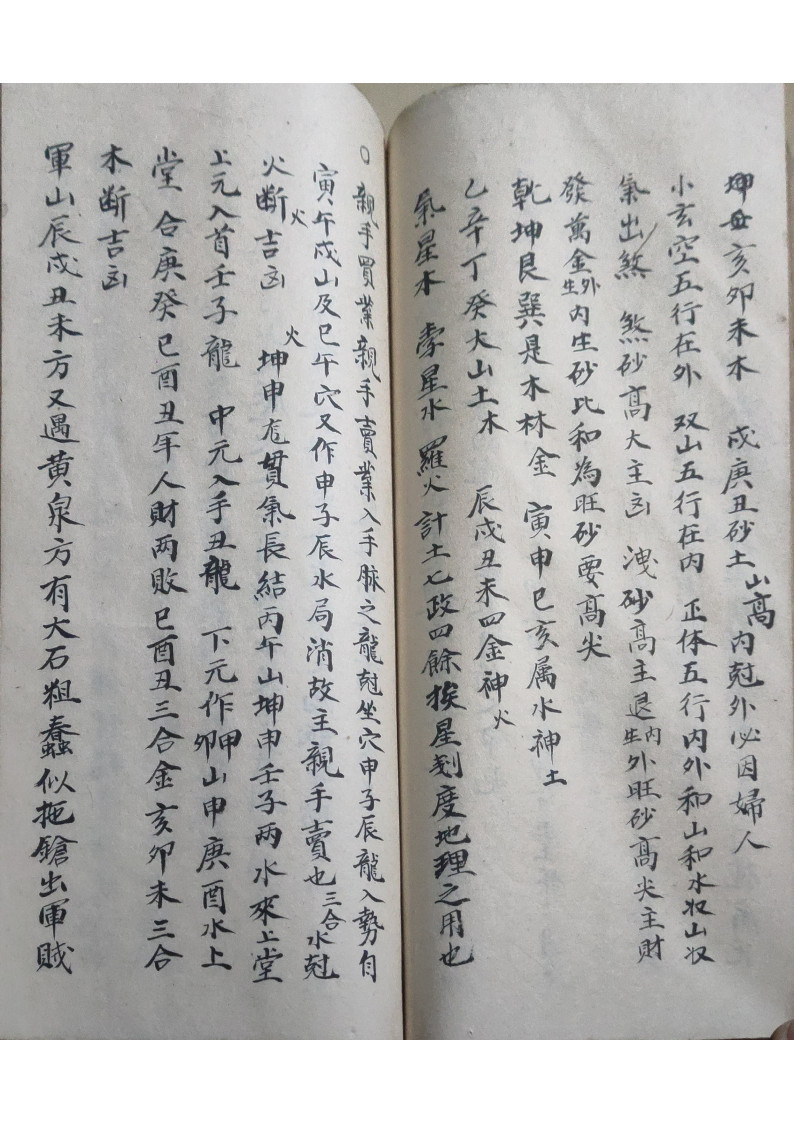 坤壬亥卯未木 戍庚丑砂土山高內尅外必因婦人
小玄空五行在外 双山五行在內 正体五行內外和山和水收山收
氣出煞 煞砂高大主凶 洩砂高主退內生外旺砂高尖主財
發萬金外生內生砂比和為旺砂要高尖
乾坤艮巽是木林金 寅申巳亥属水神土
乙辛丁癸火山土木 辰戍丑未四金神火
氣星木 孛星水 羅火計土七政四餘挨星刻度地理之用也
○親手買業親手賣業入手脉之龍尅坐穴申子辰龍入勢自
寅午戍山及巳午穴又作申子辰水局消故主親手賣也三合水尅
火火断吉凶 火坤申貫氣長結丙午山坤申壬子两水來上堂
上元入首壬子龍 中元入手丑龍 下元作甲卯山申庚酉水上
堂 合庚癸巳酉丑年人財两敗巳酉丑三合金亥卯未三合
木断吉凶
軍山辰戍丑未方又遇黄泉方有大石粗蠢似拖鎗出軍賊